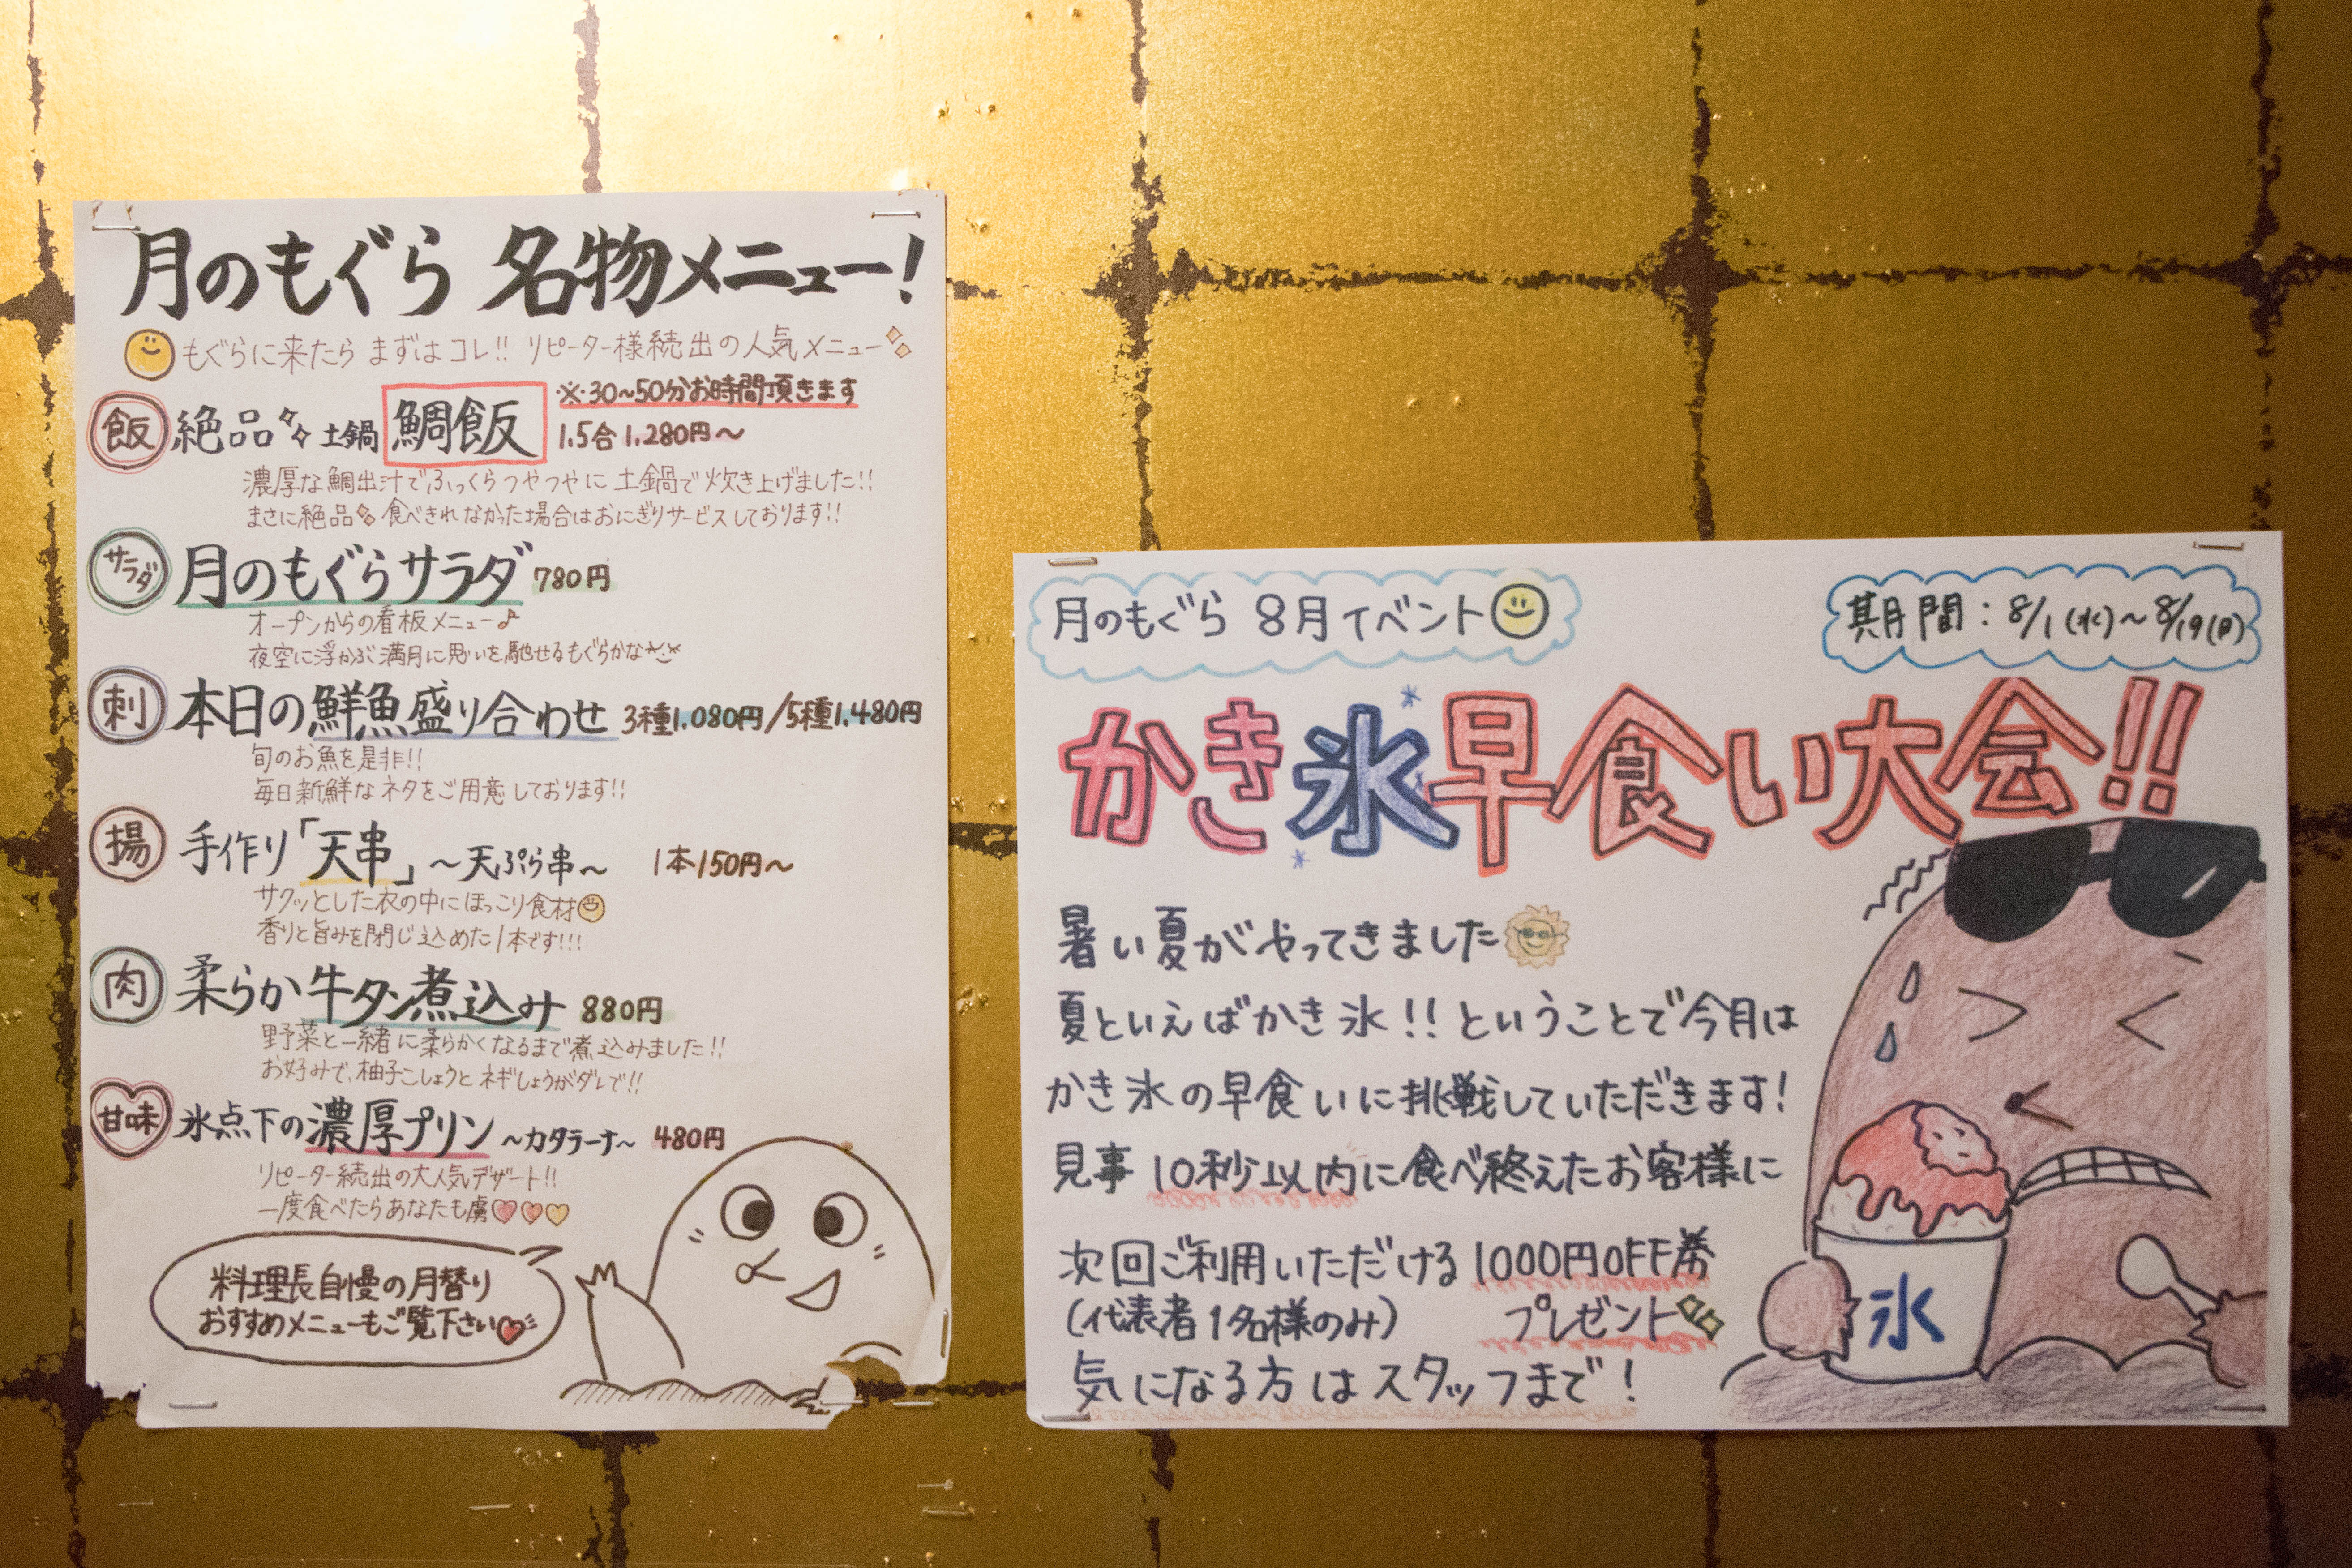 月のもぐら 名物メニュー!
もぐらに来たら まずはコレ!! リピーター様続出の人気メニュー
飯 絶品 土鍋 鯛飯 ※30~50分お時間頂きます
1.5合 1.280円～
濃厚な鯛出汁でふっくらつやつやに 土鍋で炊き上げました!!
まさに絶品 食べきれなかった場合はおにぎりサービスしております!!
サラダ 月のもぐらサラダ 780円
オープンからの看板メニュー♪
夜空に浮かぶ満月に思いを馳せるもぐらかな
刺 本日の鮮魚盛り合わせ 3種1.080円/5種1.480円
旬のお魚を是非!!
毎日新鮮なネタをご用意しております!!
揚 手作り「天串」～天ぷら串～ 1本150円～
サクッとした衣の中にほっこり食材
香りと旨みを閉じ込めた1本です!!!
肉 柔らか牛タン煮込み 880円
野菜と一緒に柔らかくなるまで煮込みました!!
お好みで、柚子こしょうとネギしょうがダレで!!
甘味 氷点下の濃厚プリン ～カタラーナ～ 480円
リピーター続出の大人気デザート!!
一度食べたらあなたも虜
料理長自慢の月替り
おすすめメニューもご覧下さい
月のもぐら 8月イベント
期間：8/1(水)～8/19(日)
かき氷早食い大会!!
暑い夏がやってきました
夏といえばかき氷!! ということで今月は
かき氷の早食いに挑戦していただきます!
見事 10秒以内に食べ終えたお客様に
次回ご利用いただける 1000円OFF券
(代表者1名様のみ) プレゼント
気になる方はスタッフまで!
氷